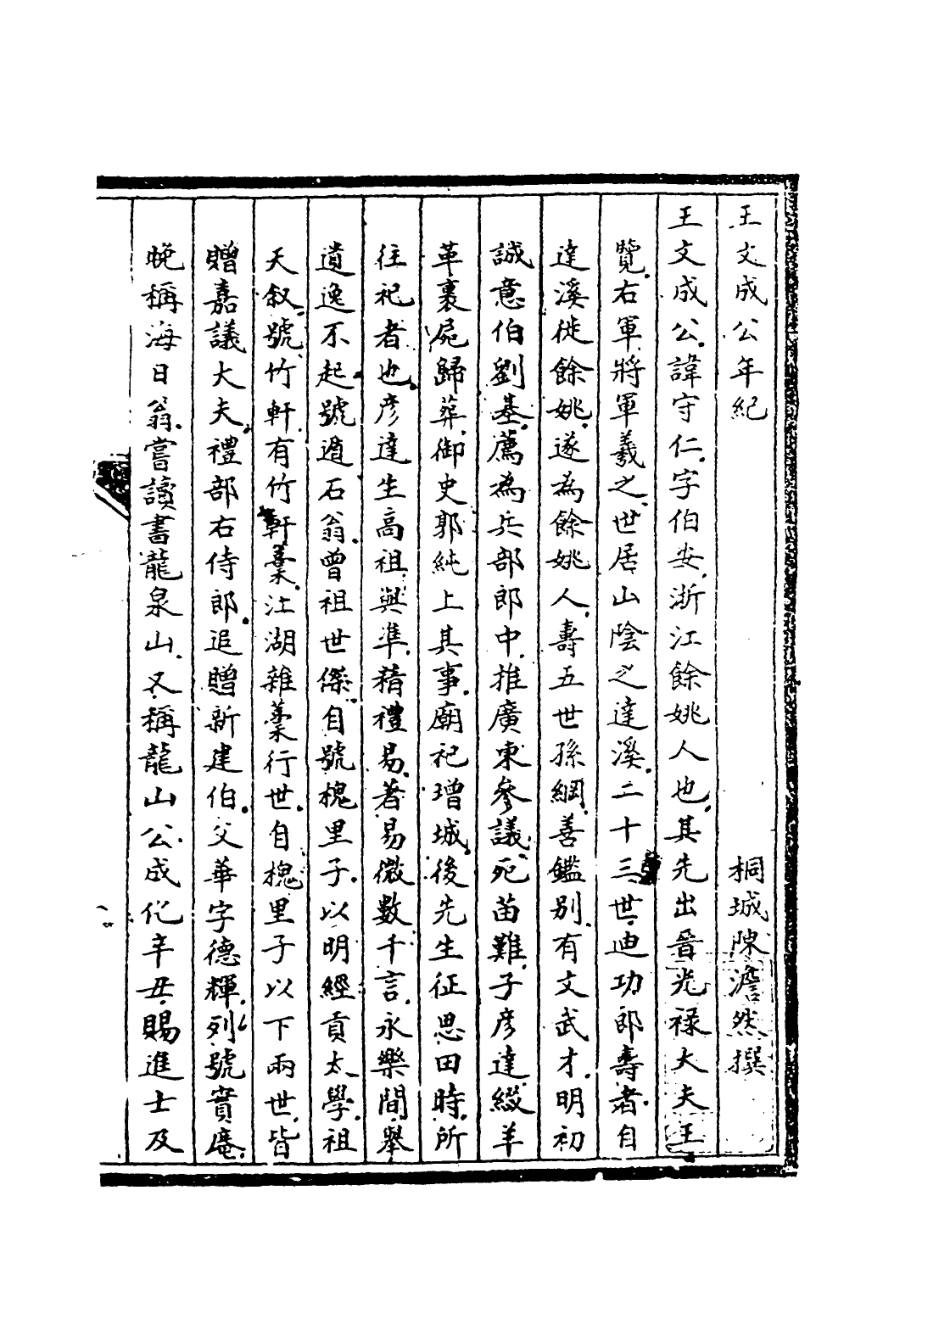 王文成公年紀
桐城陳澹然撰
王文成公諱守仁字伯安浙江餘姚人也其先出晉光祿大夫王
覽右軍將軍羲之世居山陰之達溪二十三世迪功郎壽者自
達溪徙餘姚遂為餘姚人壽五世孫綱善鑑別有文武才明初
誠意伯劉基薦為兵部郎中推廣東參議死苗難子彦達綴羊
革裹屍歸葬御史郭純上其事廟祀增城後先生征思田時所
往祀者也彦達生高祖與準精禮易著易微數千言永樂間舉
遺逸不起號遁石翁曾祖世傑自號槐里子以明經貢太學祖
天叙號竹軒有竹軒藁江湖雜藁行世自槐里子以下兩世皆
贈嘉議大夫禮部右侍郎追贈新建伯父華字德輝別號實庵
晚稱海日翁嘗讀書龍泉山又稱龍山公成化辛丑賜進士及